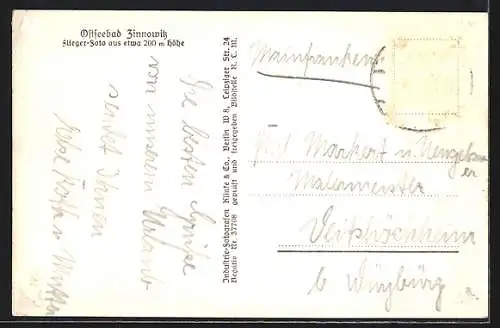 Ostseebad Zinnowitz
Flieger-Foto aus etwa 200 m Höhe
Die besten Grüße
von unserem Urlaub
sendet Ihnen
Industrie-Fotografen Klinke & Co., Berlin W 8, Leipziger Str. 24
Negativ Nr. 37708 geprüft und freigegeben Bildstelle R. L. M.
Mainfranken
Markert u.
Malermeister
Veitshöchheim
b Würzburg